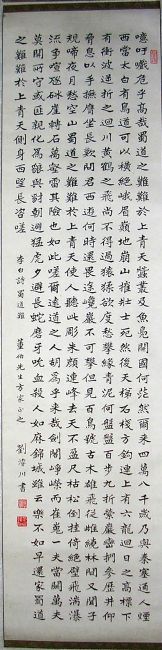 噫吁嚱危乎高哉蜀道之難難於上青天蠶叢及魚鳧開國何茫然爾來四萬八千歲乃與秦塞通人煙
西當太白有鳥道可以橫絕峨眉巔地崩山摧壯士死然後天梯石棧方鉤連上有六龍迴日之高標下
有衝波逆折之迴川黃鶴之飛尚不得過猿猱欲度愁攀緣青泥何盤盤百步九折縈巖巒捫參歷井仰
脅息以手撫膺坐長歎問君西遊何時還畏途巉巖不可攀但見悲鳥號古木雄飛從雌繞林間又聞子
規啼夜月愁空山蜀道之難難於上青天使人聽此彫朱顏連峰去天不盈尺枯松倒挂倚絕壁飛湍瀑
流爭喧豗砯崖轉石萬壑雷其險也如此嗟爾遠道之人胡為乎來哉劍閣崢嶸而崔嵬一夫當關萬夫
莫開所守或匪親化為狼與豺朝避猛虎夕避長蛇磨牙吮血殺人如麻錦城雖云樂不如早還家蜀道
之難難於上青天側身西望長咨嗟 李白詩蜀道難 伯先生方家正之 劉川書